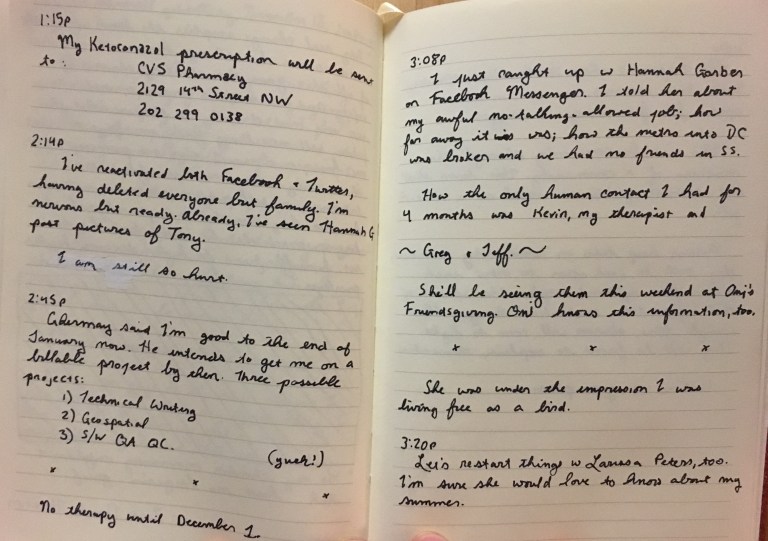 1:15p
My Ketoconazol prescription will be sent
to:
CVS Pharmacy
2129 14th Street NW
202 299 0138
2:14p
I've reactivated both Facebook + Twitter,
having deleted everyone but family. I'm
nervous but ready. Already, I've seen Hannah G
post pictures of Tony.
I am still so hurt.
2:45p
Ghermay said I'm good to the end of
January now. He intends to get me on a
billable project by then. Three possible
projects:
1) Technical Writing
2) Geospatial
3) S/W QA QC.
(yuck!)
x x x
No therapy until December 1.
3:08p
I just caught up w Hannah Garber
on Facebook Messenger. I told her about
my awful no-talking-allowed job; how
far away it was; how the metro into DC
was broken and we had no friends in SS.
How the only human contact I had for
4 months was Kevin, my therapist and
~ Greg + Jeff. ~
She'll be seeing them this weekend at
Friendsgiving. knows this information, too.
x x x
She was under the impression I was
living free as a bird.
3:20p
Let's restart things w Larissa Peters, too.
I'm sure she would love to know about my
summer.